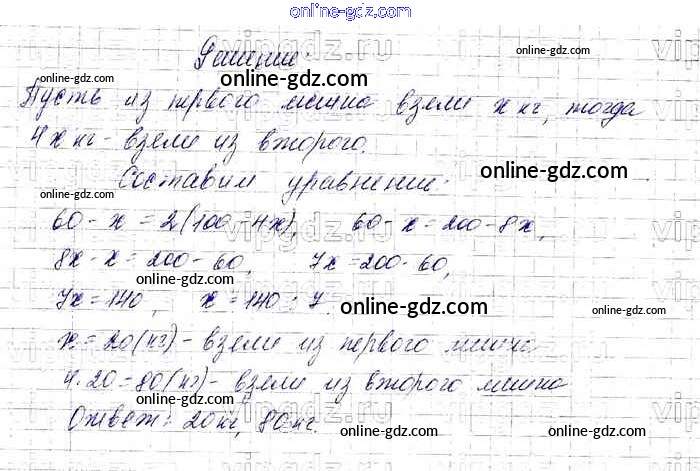 online-gdz.com
Решение:
online-gdz.com
online-gdz.com
online-gdz.com
Пусть из первого мешка взяли x кг, тогда
4x кг - взяли из второго.
online-gdz.com
online-gdz.com
Составим уравнение:
60 - x = 2(100 - 4x), 60 - x = 200 - 8x,
8x - x = 200 - 60, 7x = 200 - 60,
online-gdz.com
7x = 140, x = 140 : 7
online-gdz.com
online-gdz.com
x = 20 (кг) - взяли из первого мешка
4 · 20 = 80 (кг) - взяли из второго мешка
Ответ: 20 кг, 80 кг.
online-gdz.com
online-gdz.com
online-gdz.com
vipgdz.ru